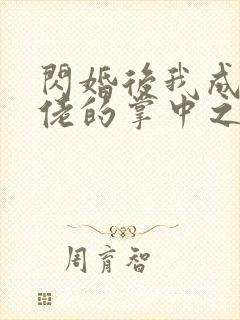 閃婚後我成
佬的掌中之
周育智